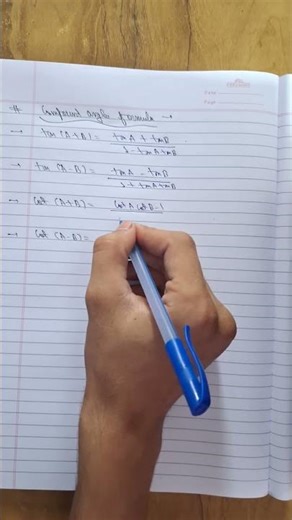 # Compound angle formula →
→ tan (A+B) = tanA + tanB / 1 - tanA tanB
→ tan (A-B) = tanA - tanB / 1 + tanA tanB
→ Cot (A+B) = CotA CotB - 1
→ Cot (A-B) =